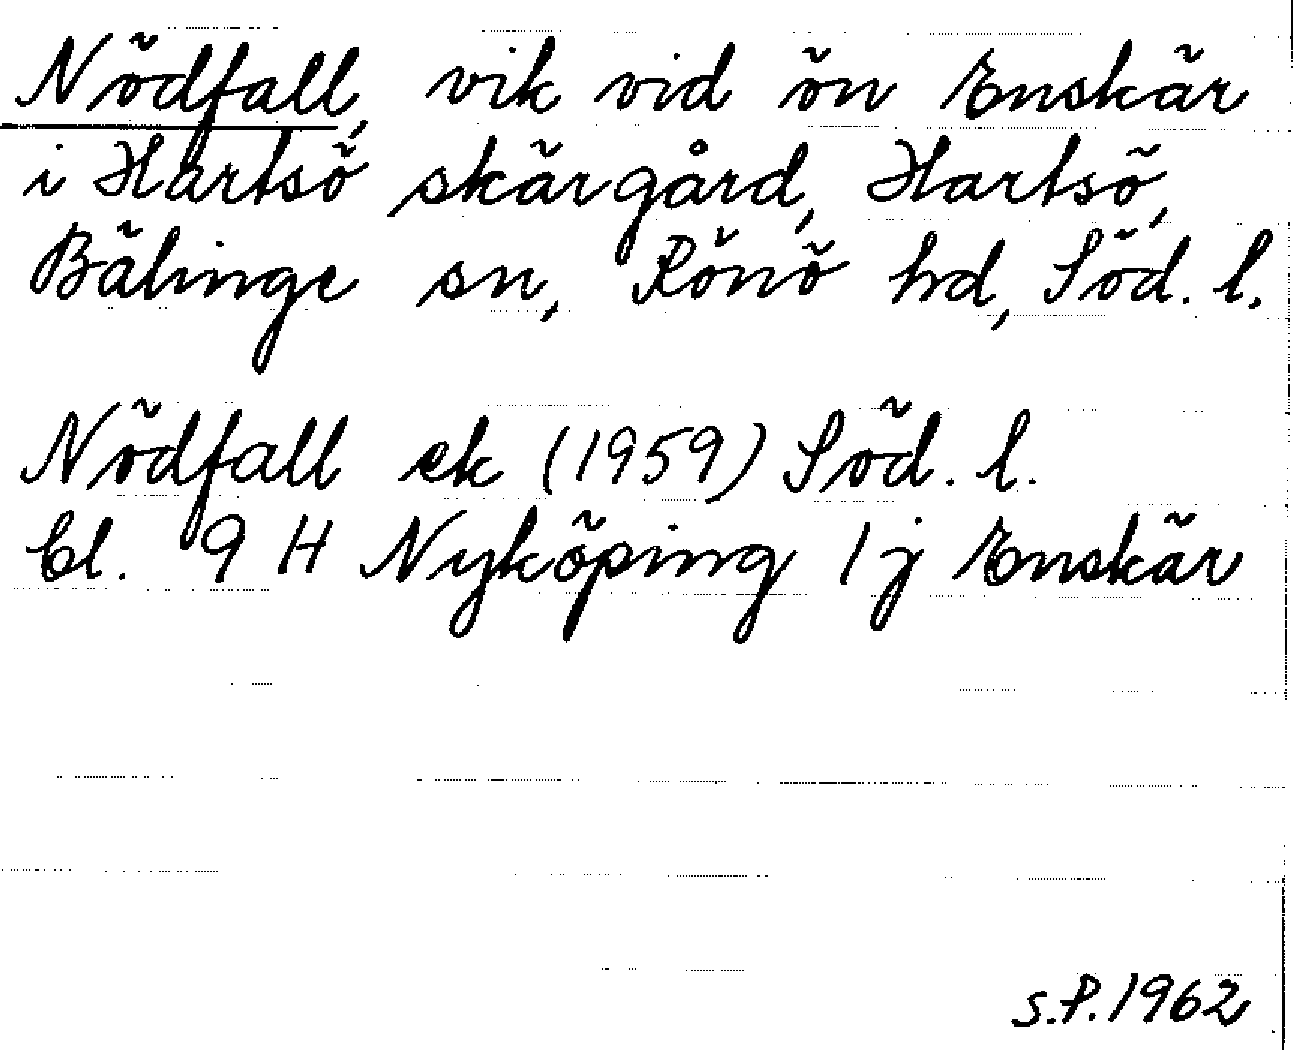 Nödfall, vik vid ön Enskär
i Hartsö skärgård, Hartsö,
Bälinge sn, Rönö hd, Söd. l.
Nödfall ek (1959) Söd. l.
Bl. 9 H Nyköping 1j Enskär
S.P. 1962